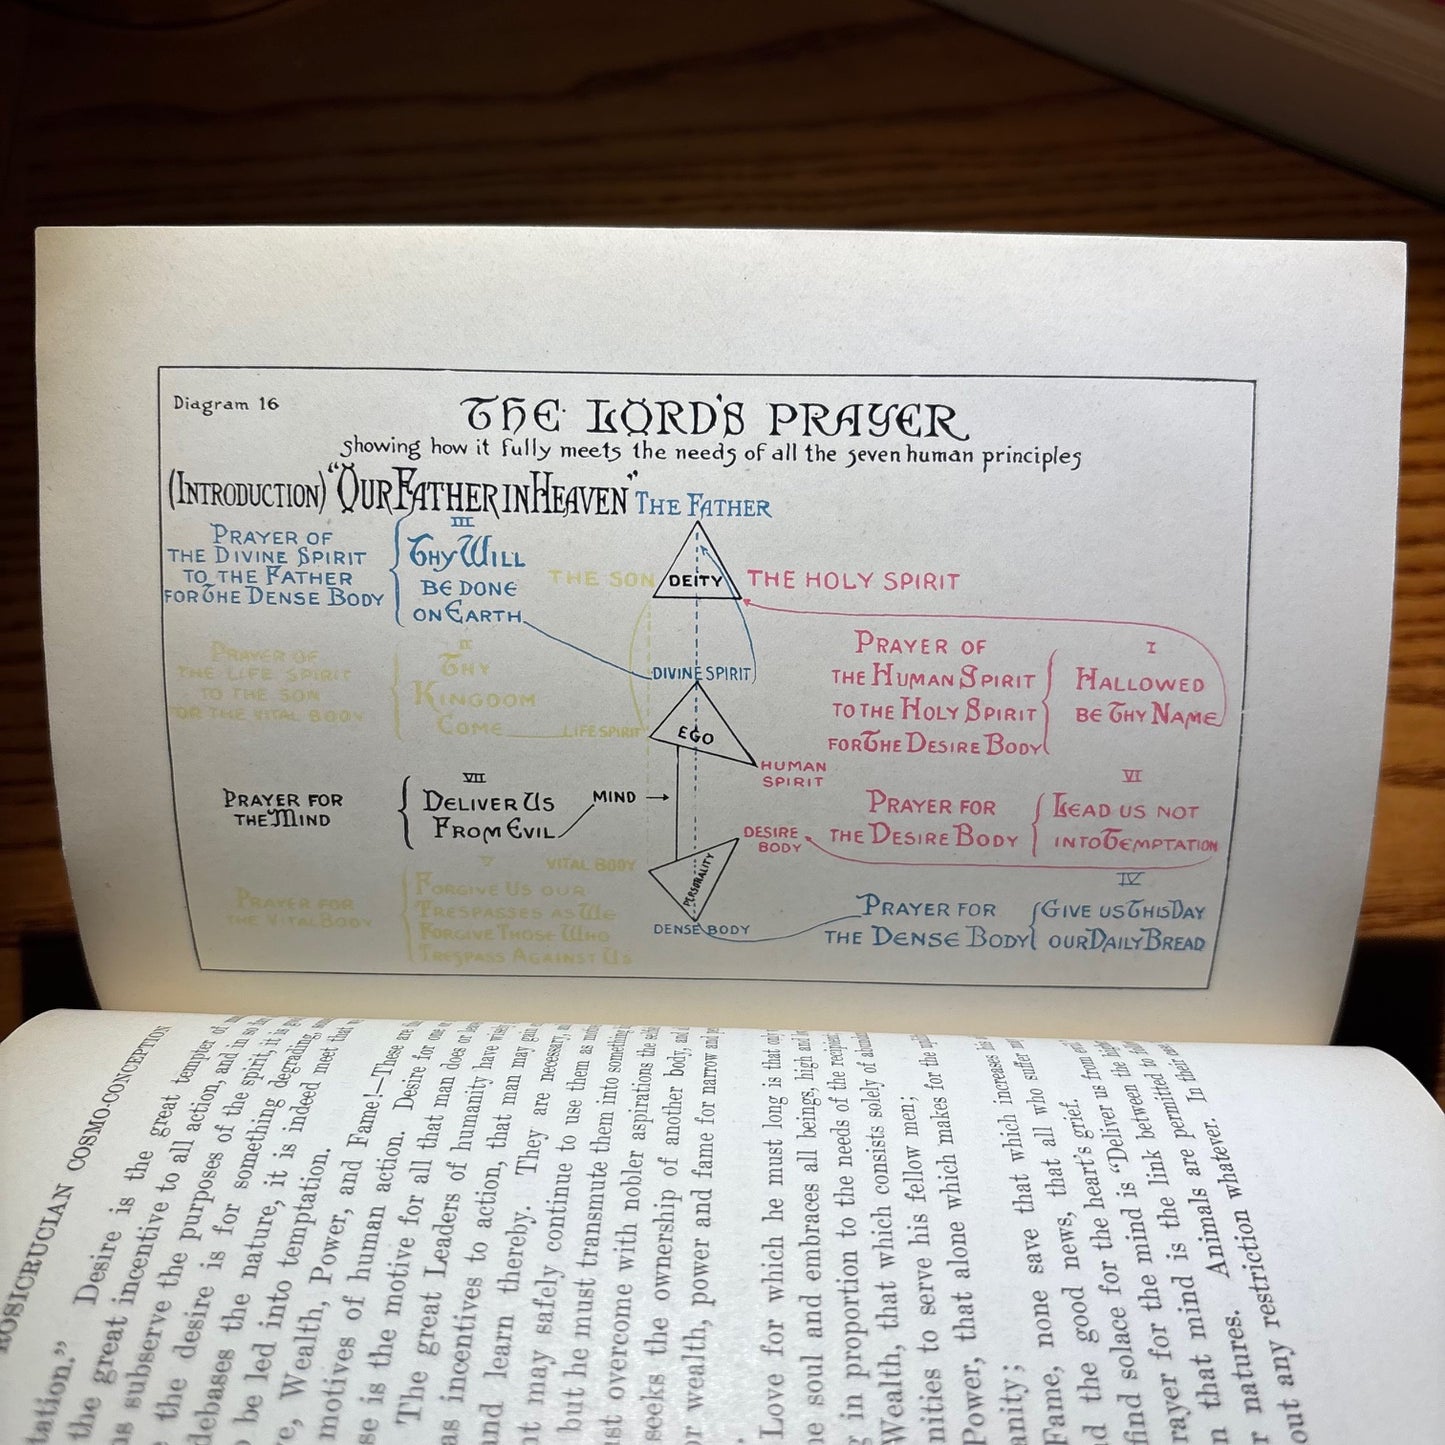 Diagram 16
THE LORD'S PRAYER
showing how it fully meets the needs of all the seven human principles
(INTRODUCTION) "OUR FATHER IN HEAVEN" THE FATHER
PRAYER OF
THE DIVINE SPIRIT
TO THE FATHER
FOR THE DENSE BODY
III
THY WILL
BE DONE
ON EARTH
THE SON
DEITY
THE HOLY SPIRIT
PRAYER OF
THE LIFE SPIRIT
TO THE SON
FOR THE VITAL BODY
II
THY
KINGDOM
COME
LIFE SPIRIT
DIVINE SPIRIT
EGO
HUMAN
SPIRIT
PRAYER OF
THE HUMAN SPIRIT
TO THE HOLY SPIRIT
FOR THE DESIRE BODY
I
HALLOWED
BE THY NAME
PRAYER FOR
THE MIND
VII
DELIVER US
FROM EVIL
MIND
DESIRE
BODY
PRAYER FOR
THE DESIRE BODY
VI
LEAD US NOT
INTO TEMPTATION
PRAYER FOR
THE VITAL BODY
V
FORGIVE US OUR
TRESPASSES AS WE
FORGIVE THOSE WHO
TRESPASS AGAINST US
VITAL BODY
PERSONALITY
DENSE BODY
PRAYER FOR
THE DENSE BODY
IV
GIVE US THIS DAY
OUR DAILY BREAD
ROSICRUCIAN COSMO-CONCEPTION
tation." Desire is the great tempter of
the great incentive to all action, and in so
as subserve the purposes of the spirit, it is
the desire is for something degrading,
debases the nature, it is indeed meet that
be led into temptation.
Love, Wealth, Power, and Fame!—These are
motives of human action. Desire for one
is the motive for all that man does or
The great Leaders of humanity have
as incentives to action, that man may gain
and learn thereby. They are necessary,
may safely continue to use them as
but he must transmute them into something
overcome with nobler aspirations the
seeks the ownership of another body, and
or wealth, power and fame for narrow and
Love for which he must long is that only
soul and embraces all beings, high and
in proportion to the needs of the recipient;
Wealth, that which consists solely of
to serve his fellow men;
Power, that alone which makes for the
Fame, none save that which increases his
and the good news, that all who suffer
find solace for the heart's grief.
prayer for the mind is "Deliver us from
that mind is the link between the higher
natures. Animals are permitted to
out any restriction whatever. In their